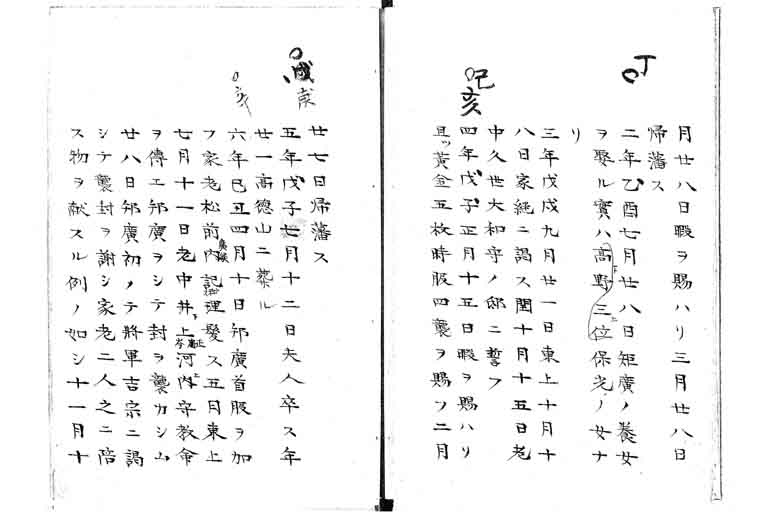 丁
月廿八日暇ヲ賜ハリ三月廿八日
帰藩ス
二年乙酉七月廿八日矩廣ノ養女
ヲ娶ル實ハ高野三位保光ノ女ナ
リ
三年戊戌九月廿一日東上十月十
八日家純ニ謁ス閏十月十五日老
中久世大和守ノ邸ニ誓フ
己亥
四年戊子正月十五日暇ヲ賜ハリ
且ツ黃金五枚時服四襲ヲ賜フ二月
廿七日帰藩ス
戌
五年戊子七月十二日夫人卒ス年
廿一高德山ニ葬ル
亥
六年巳丑四月十日邦廣首服ヲ加
フ家老松前內記理髮ス五月東上
七月十一日老中井上河內守教命
ヲ傳エ邦廣ヲシテ封ヲ襲カシム
廿八日邦廣初メテ將軍吉宗ニ謁
シテ襲封ヲ謝シ家老二人之ニ陪
ス物ヲ献スル例ノ如シ十一月十